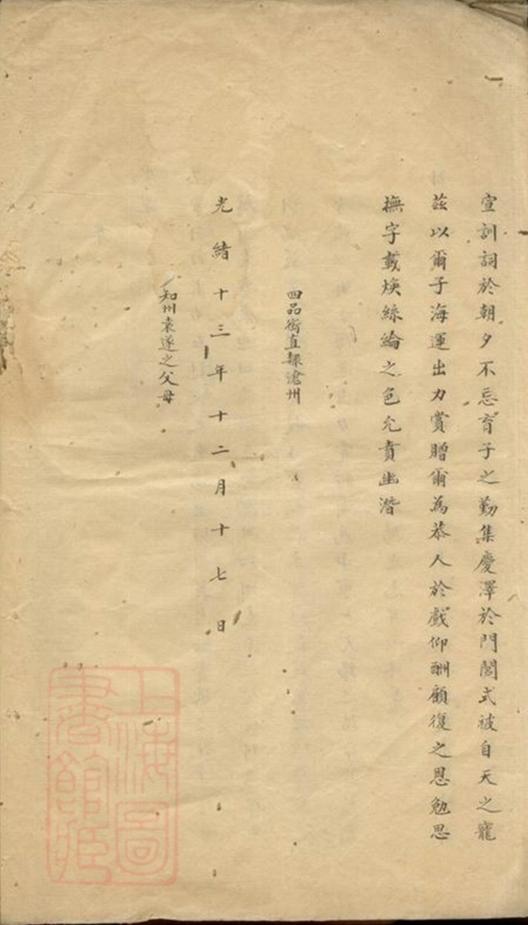 宣訓詞於朝夕不忘育子之勤集慶澤於門閭式被自天之寵
茲以爾子海運出力賞贈爾為恭人於戲仰酬顧復之恩勉思
撫字載煥絲綸之色允賁幽潛
四品銜直隸滄州
光緒十三年十二月十七日
知州袁遂之父母
上海圖
書館